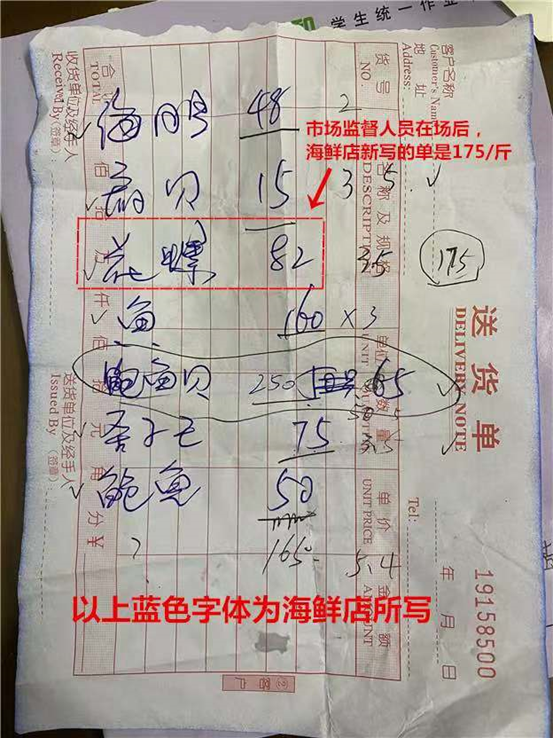 学生统一作业
市场监督人员在场后，
海鲜店新写的单是175/斤
48 2
贝 15 3 5
花螺 82 35
175
鱼 160 x 3
鲍鱼贝 250 65
75
鲍鱼 50
?
1650
5.4
以上蓝色字体为海鲜店所写
送货单
DELIVERY NOTE
19158500
年 月 日
客户名称
Customer's Name
地址
Address:
Tel:
货号
NO.
名称及规格
DESCRIPTION
单位
UNIT
数量
单价
UNIT PRICE
金额
AMOUNT
合计
TOTAL
佰 拾 万 仟 佰 拾 元 角 分 ￥
收货单位及经手人
Received By:(签章)
送货单位及经手人
Issued By:(签章)
②客户